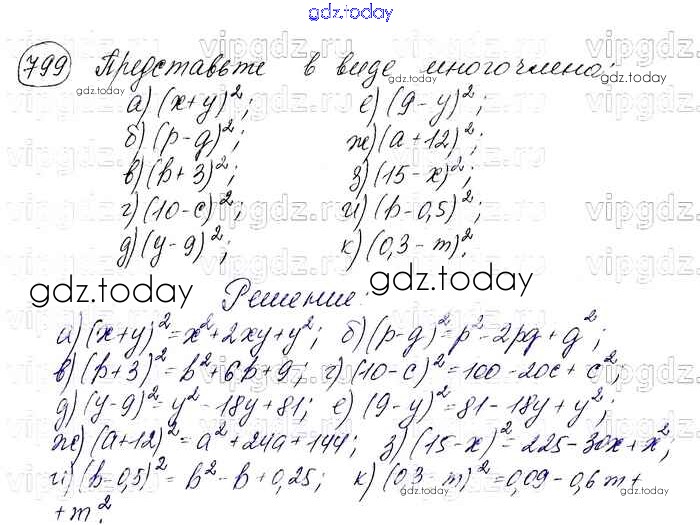 gdz.today
799 Представьте в виде многочлена:
а) (x+y)²; е) (9-y)²;
б) (p-g)²; ж) (a+12)²;
в) (b+3)²; з) (15-x)²;
г) (10-c)²; и) (b-0,5)²;
д) (y-9)²; к) (0,3-m)².
gdz.today gdz.today
Решение:
а) (x+y)²=x²+2xy+y²; б) (p-g)²=p²-2pg+g²;
в) (b+3)²=b²+6b+9; г) (10-c)²=100-20c+c²;
д) (y-9)²=y²-18y+81; е) (9-y)²=81-18y+y²;
ж) (a+12)²=a²+24a+144; з) (15-x)²=225-30x+x²;
и) (b-0,5)²=b²-b+0,25; к) (0,3-m)²=0,09-0,6m+
+m².